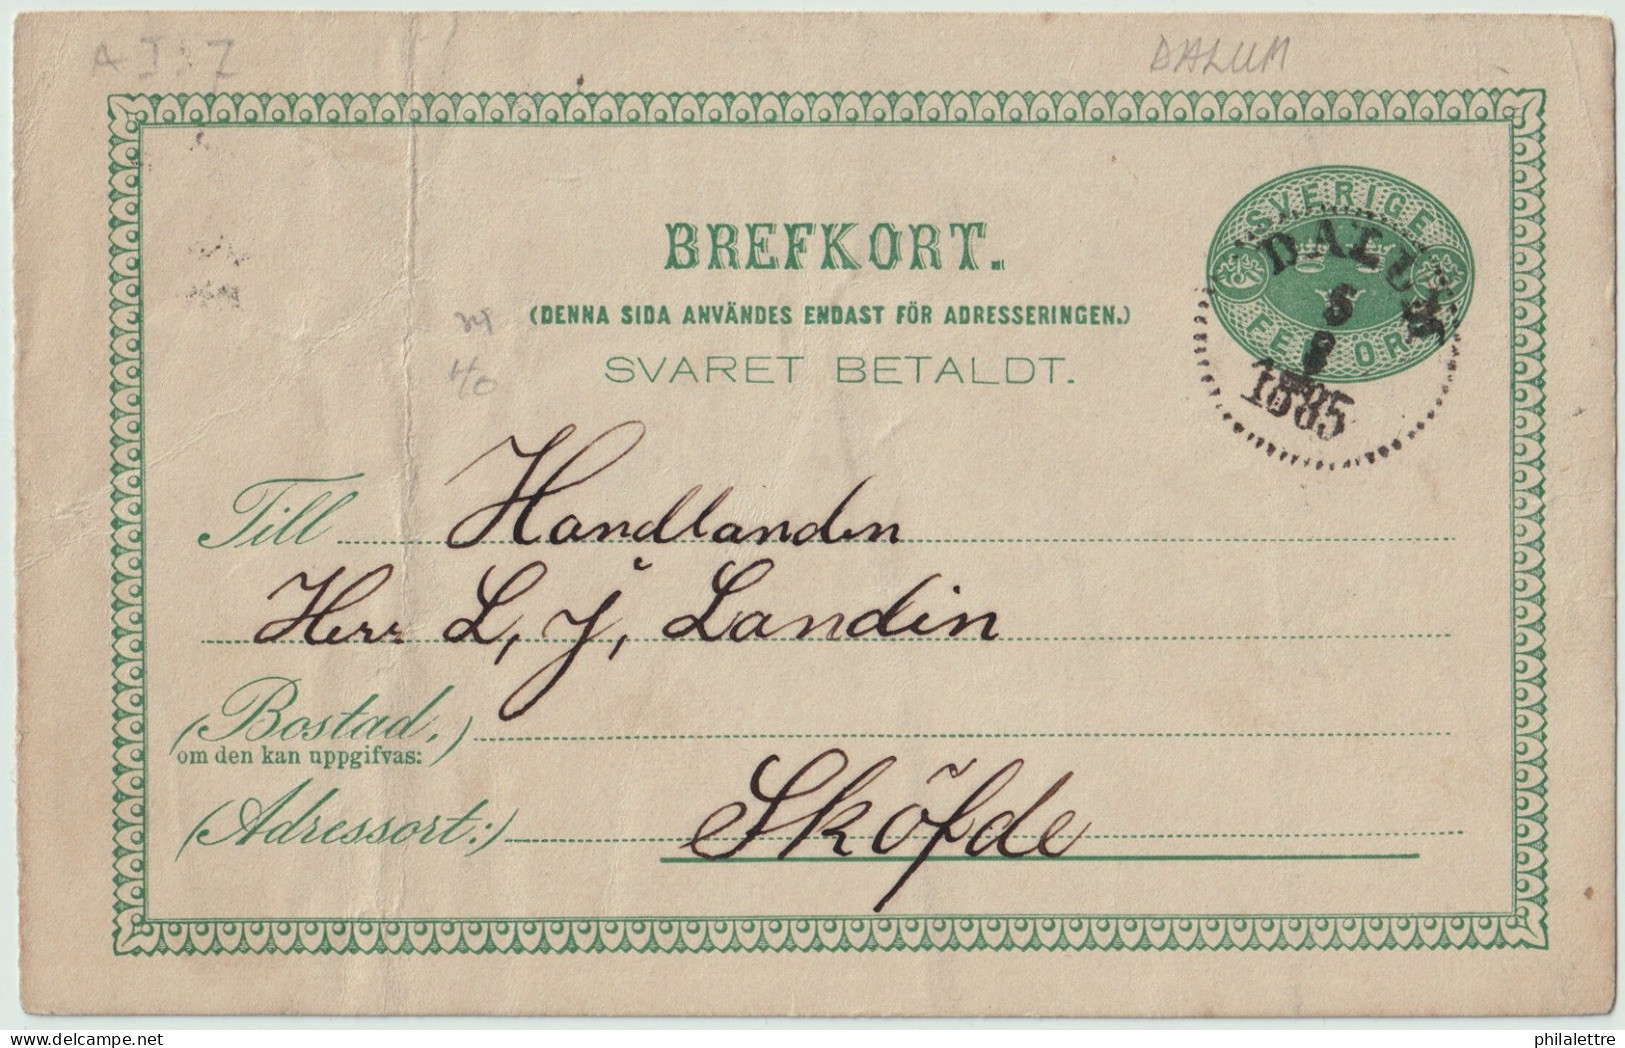 DALUM
BREFKORT.
(DENNA SIDA ANVÄNDES ENDAST FÖR ADRESSERINGEN.)
SVARET BETALDT.
SVERIGE
FEM ÖRE
DALUM
5
9
1885
Till Handlanden
Herr L, J, Landin
(Bostad,)
om den kan uppgifvas:
(Adressort:) Sköfde
philalettre